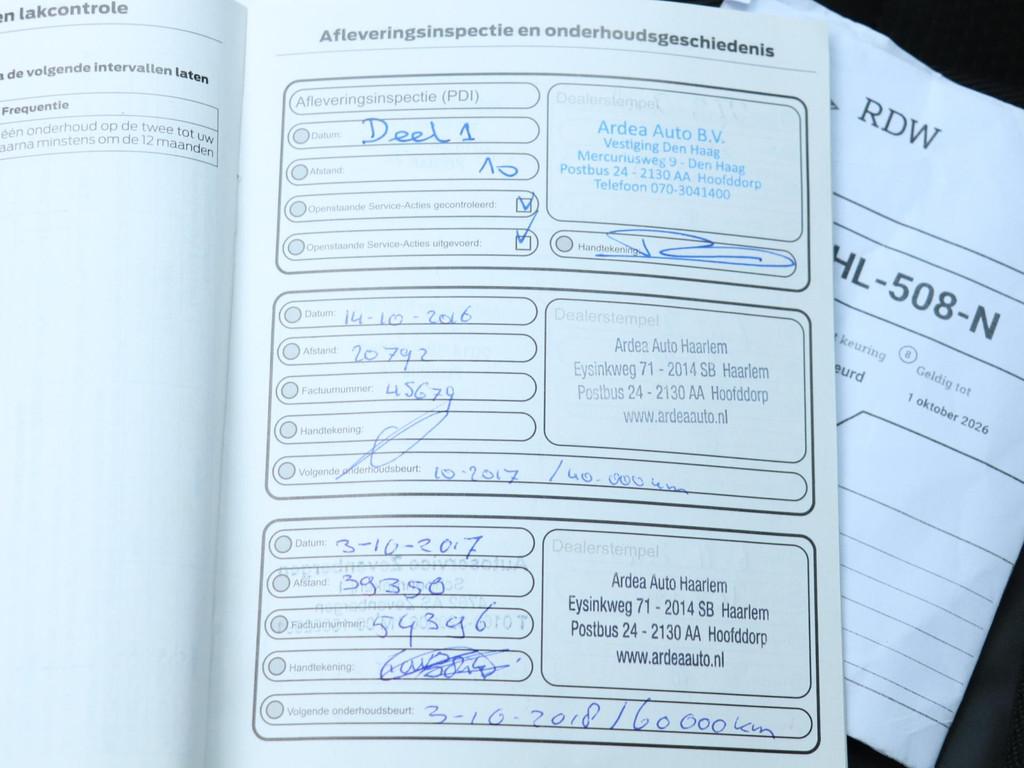 en lakcontrole
a de volgende intervallen laten
Frequentie
één onderhoud op de twee tot uw
aarna minstens om de 12 maanden
Afleveringsinspectie en onderhoudsgeschiedenis
Afleveringsinspectie (PDI)
Datum: Deel 1
Afstand: 10
Openstaande Service-Acties gecontroleerd:
Openstaande Service-Acties uitgevoerd:
Dealerstempel
Ardea Auto B.V.
Vestiging Den Haag
Mercuriusweg 9 - Den Haag
Postbus 24 - 2130 AA Hoofddorp
Telefoon 070-3041400
Handtekening:
Datum: 14-10-2016
Afstand: 20792
Factuurnummer: 45679
Handtekening:
Volgende onderhoudsbeurt: 10-2017 / 40.000 km
Dealerstempel
Ardea Auto Haarlem
Eysinkweg 71 - 2014 SB Haarlem
Postbus 24 - 2130 AA Hoofddorp
www.ardeaauto.nl
Datum: 3-10-2017
Afstand: 39350
Factuurnummer: 54396
Handtekening:
Volgende onderhoudsbeurt: 3-10-2018 / 60000 km
Dealerstempel
Ardea Auto Haarlem
Eysinkweg 71 - 2014 SB Haarlem
Postbus 24 - 2130 AA Hoofddorp
www.ardeaauto.nl
RDW
HL-508-N
keuring
8
Geldig tot
eurd
1 oktober 2026